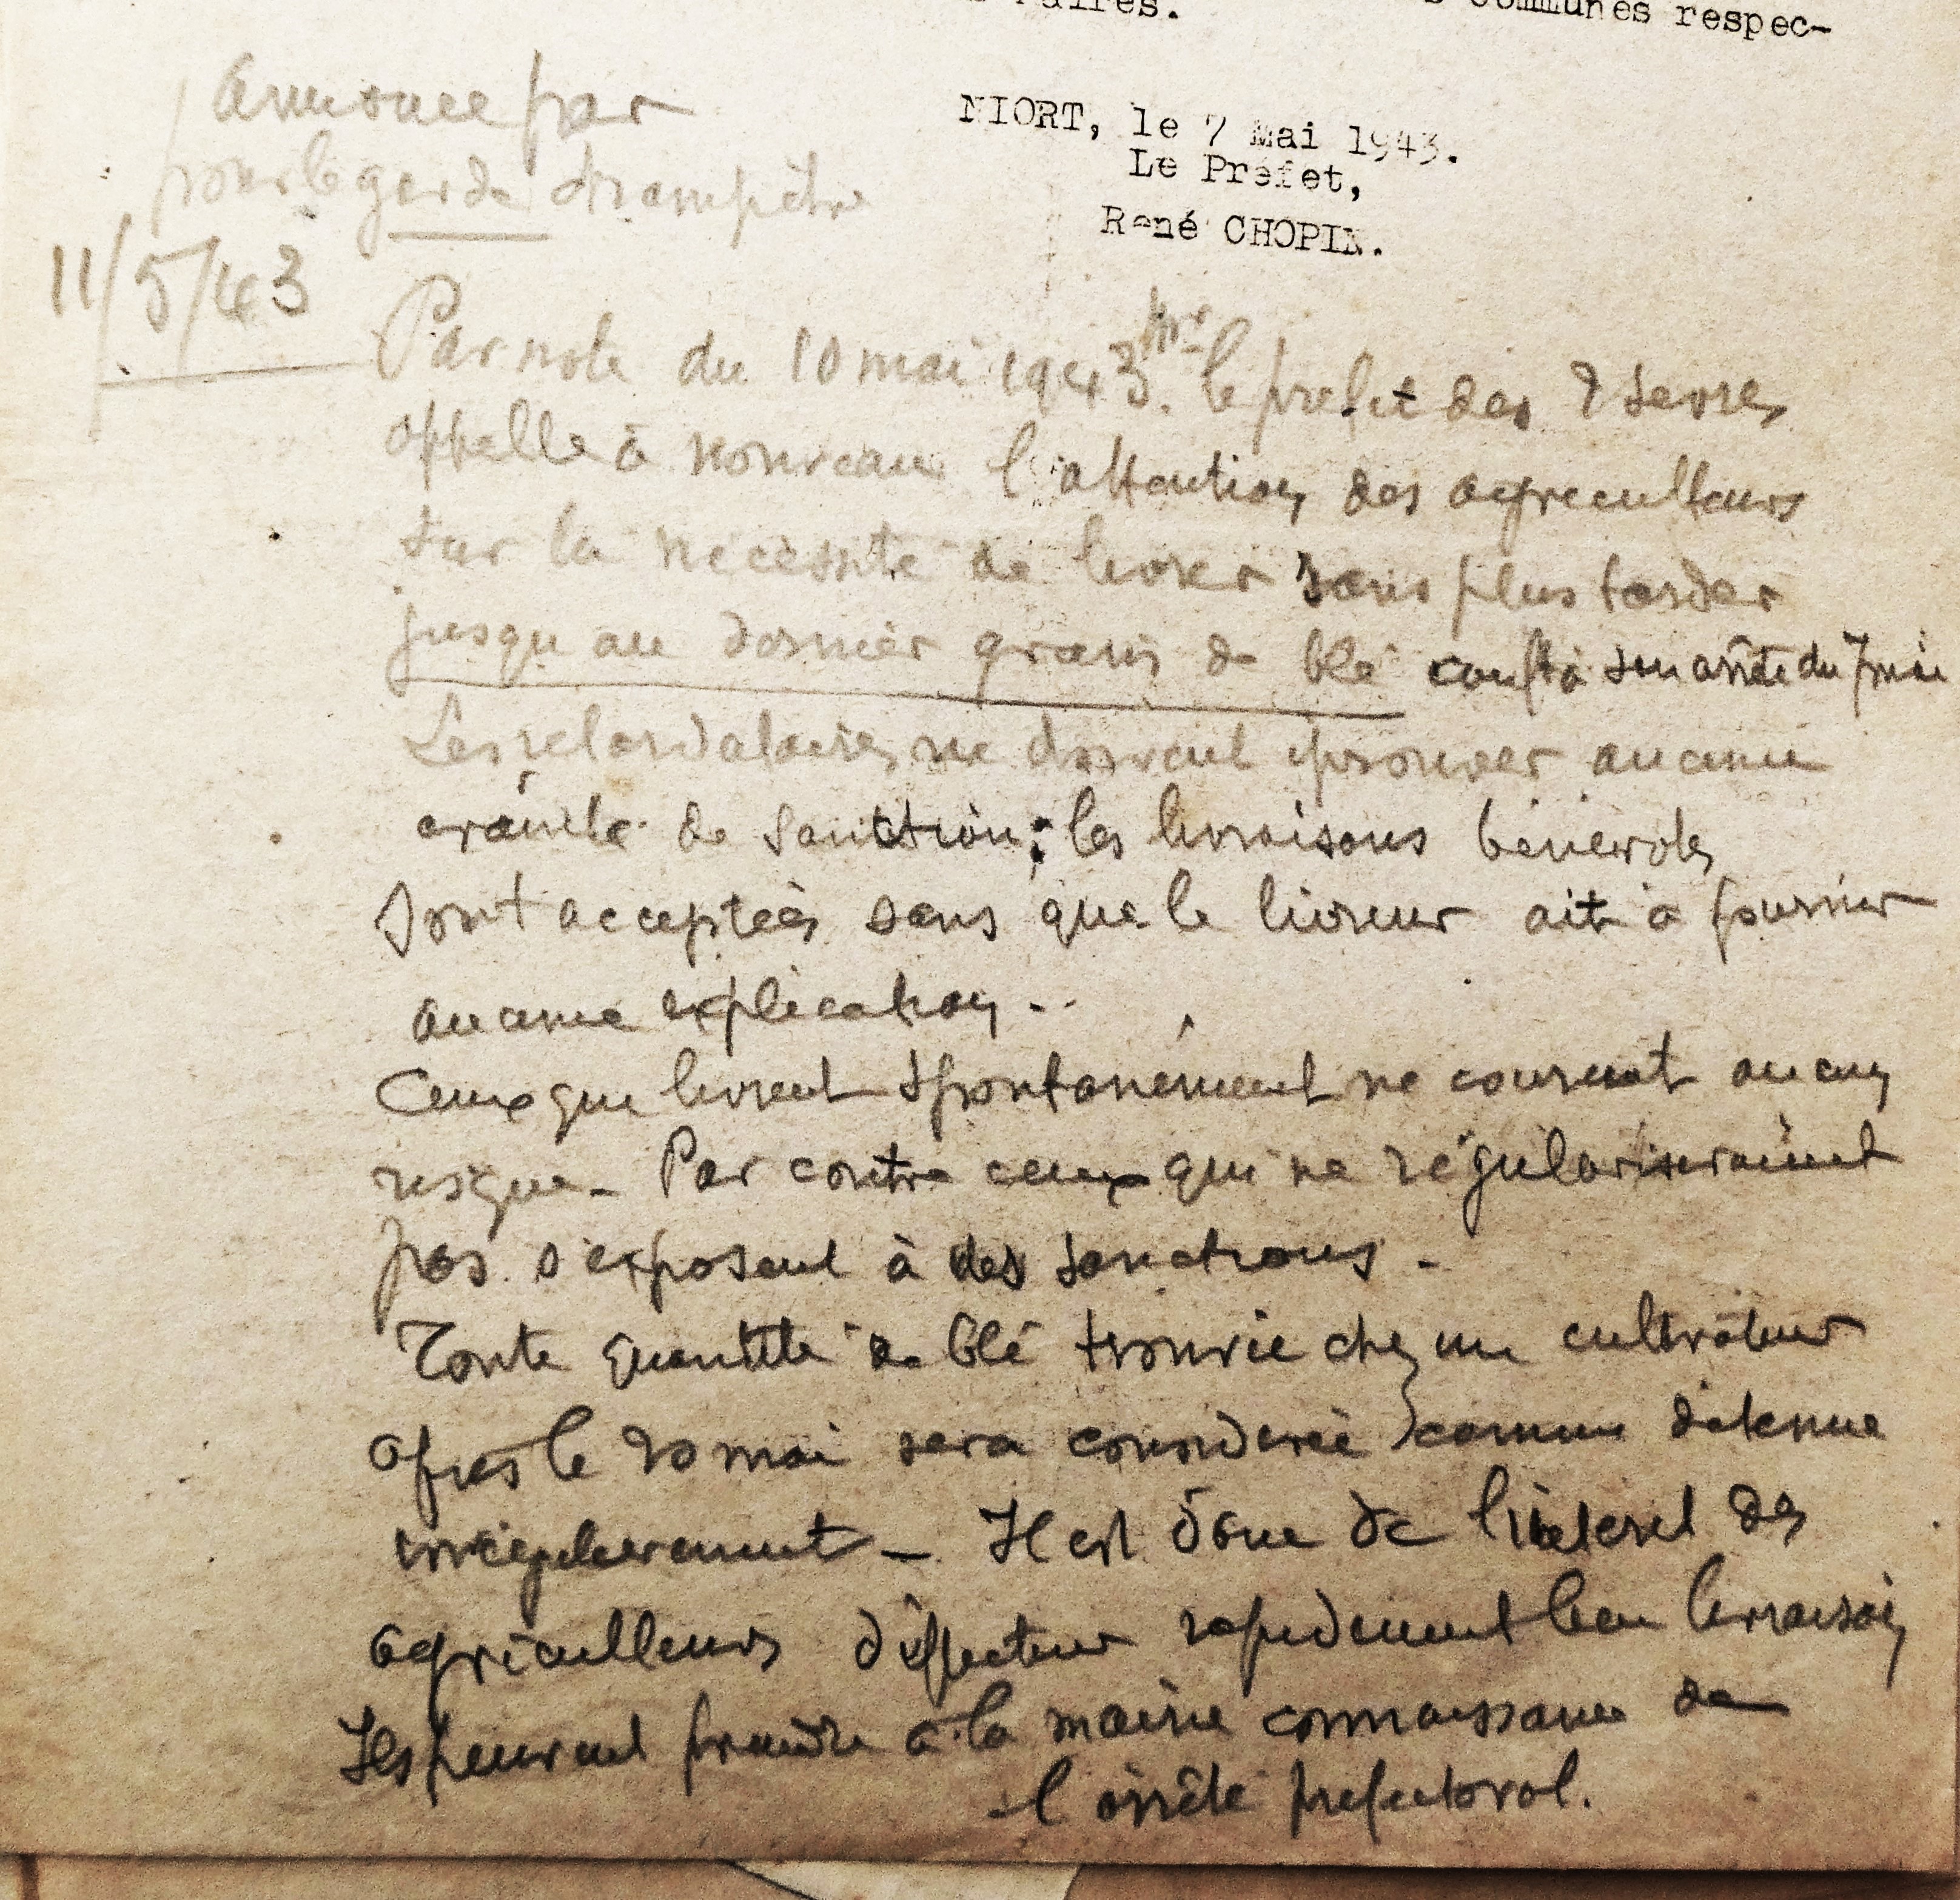 communes respec-
aires.
NIORT, le 7 Mai 1943.
Le Préfet,
René CHOPIN.
Annonce par
pour le garde champêtre
11/5/43
Par note du 10 mai 1943. Mr le prefet des 2 Sevres
appelle à nouveau l'attention des agriculteurs
sur la necessité de livrer sans plus tarder
jusqu au dernier grain de blé conft à son arrêté du 7 mai
Les retardataires ne doivent éprouver aucune
crainte de sanction ; les livraisons bénévoles
sont acceptées sans que le livreur ait à fournir
aucune explication ..
Ceux qui livrent spontanément ne courent aucun
risque - Par contre ceux qui ne régulariseraient
pas s'exposent à des sanctions -
Toute quantité de blé trouvée chez un cultivateur
après le 20 mai sera considerée comme détenue
irrégulierement - Il est donc de l'intérêt des
agriculteurs d'effectuer rapidement leur livraison
Ils peuvent prendre à la mairie connaissance de
l'arrêté prefectoral.